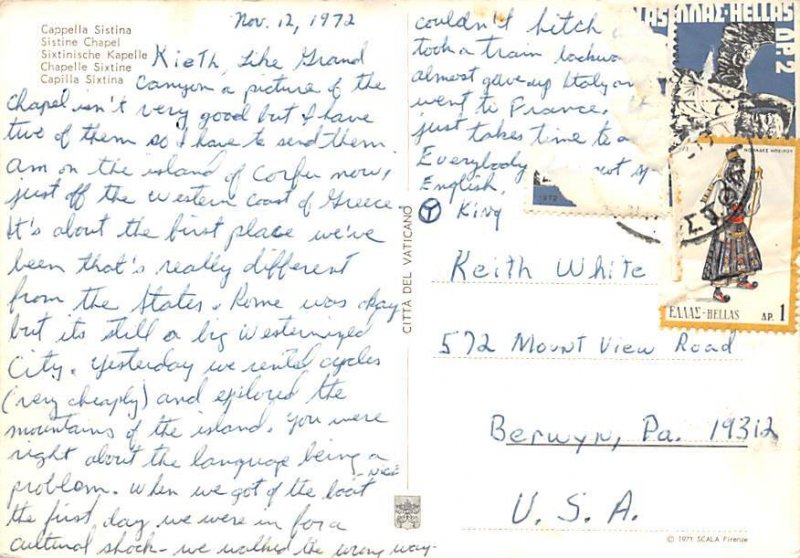 Cappella Sistina
Sistine Chapel
Sixtinische Kapelle
Chapelle Sixtine
Capilla Sixtina
Nov. 12, 1972
Kieth, Like Grand
Canyon a picture of the
chapel isn't very good but I have
two of them so I have to send them.
Am on the island of Corfu now,
just off the western coast of Greece.
It's about the first place we've
been that's really different
from the States. Rome was okay
but its still a big Westernized
City. Yesterday we rented cycles
(very cheaply) and explored the
mountains of the island. You were
right about the language being a
problem. When we got of the boat
the first day we were in for a nice
cultural shock - we walked the wrong way.
couldn't hitch
took a train
almost gave up Italy
went to France.
just takes time to
Everybody not
English,
King
CITTÀ DEL VATICANO
ΕΛΛΑΣ-HELLAS
ΔΡ 2
1972
ΕΛΛΑΣ-HELLAS ΔΡ. 1
Keith White
572 Mount View Road
Berwyn, Pa. 19312
U. S. A.
© 1971 SCALA Firenze